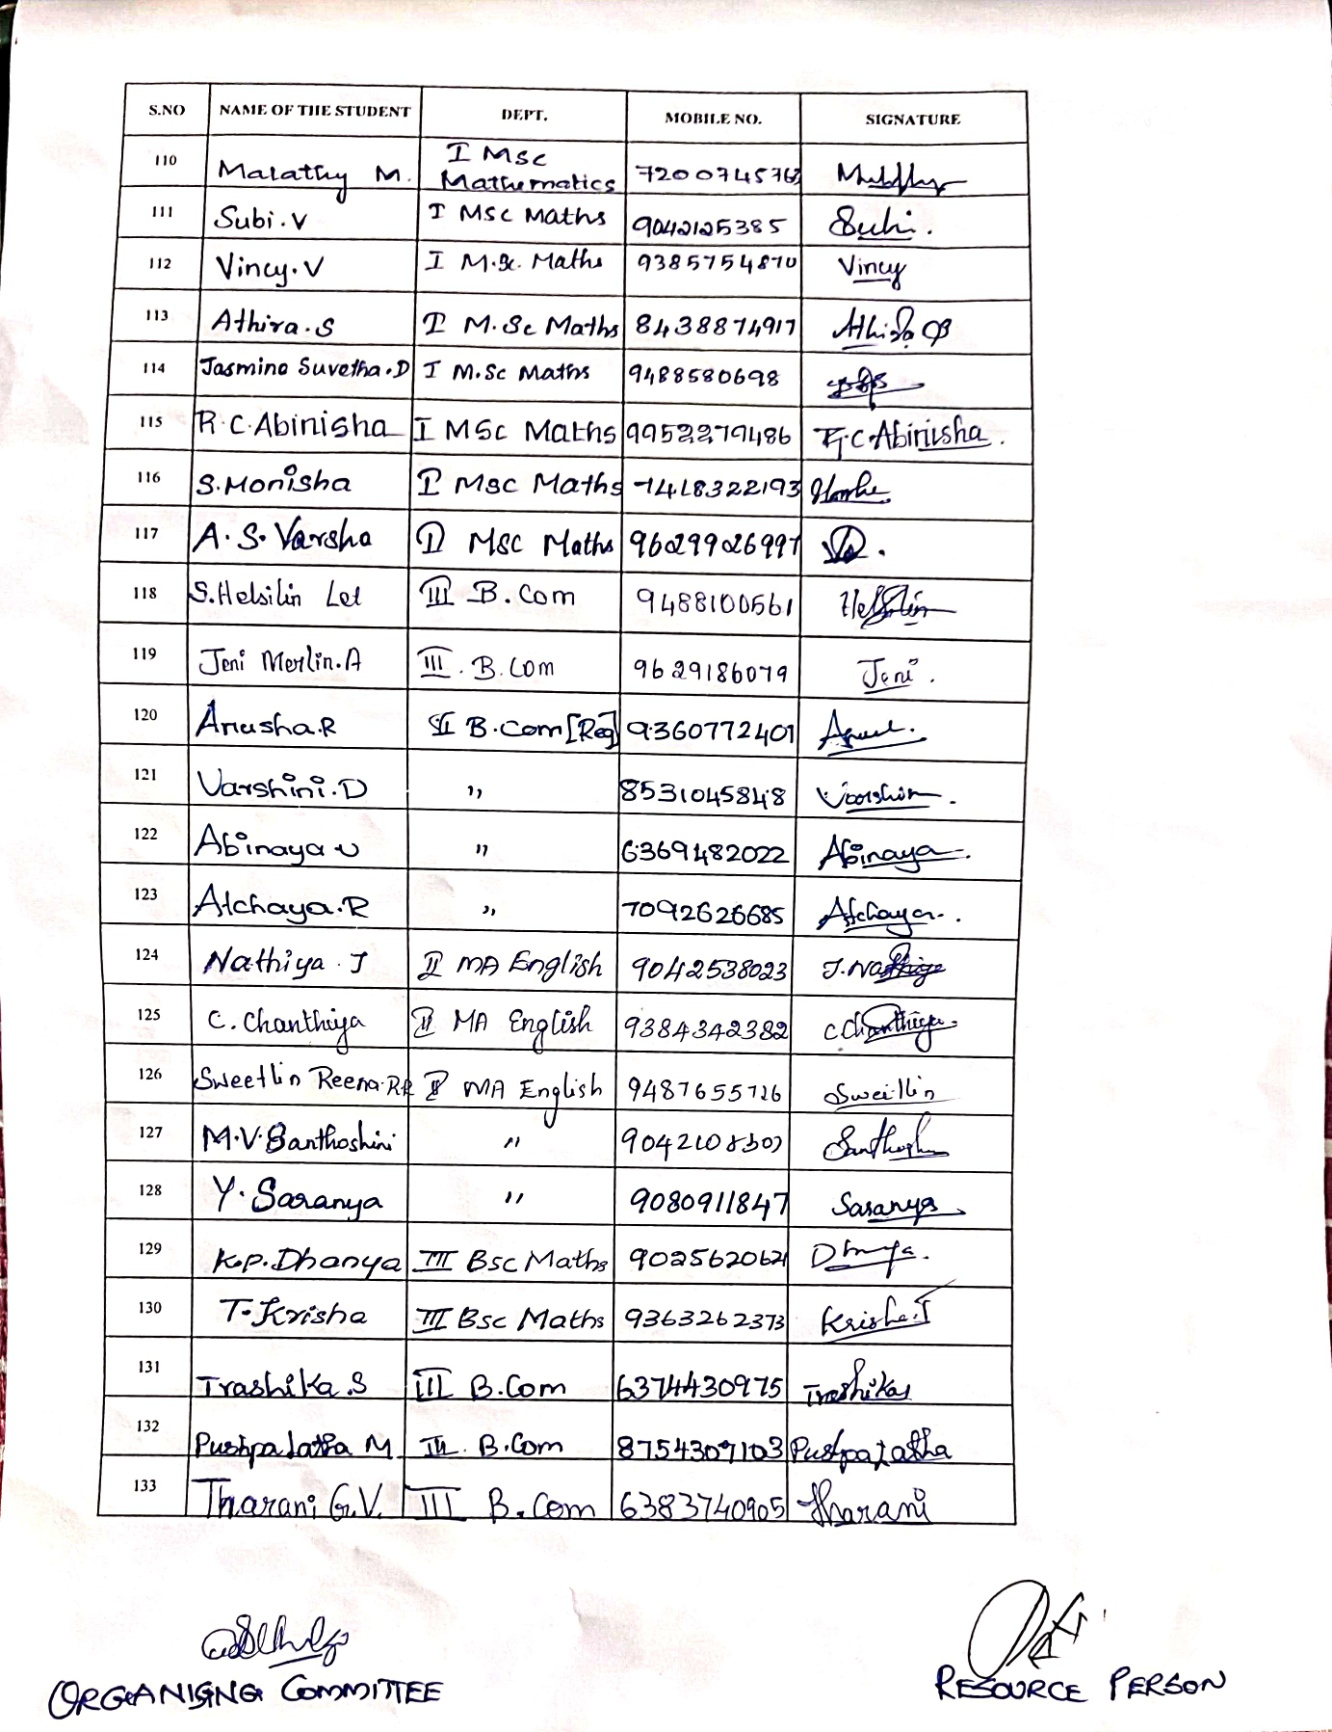 S.NO NAME OF THE STUDENT DEPT. MOBILE NO. SIGNATURE
110 Malathy M. I Msc Mathematics 7200745763
111 Subi.V I MSc Maths 9042125385 Subi.
112 Vincy.V I M.Sc. Maths 9385754870 Vincy
113 Athira.S I M.Sc Maths 8438874917
114 Jasmine Suvetha.D I M.Sc Maths 9488580698
115 R.C.Abinisha I MSc Maths 9952279486 R.C.Abinisha.
116 S.Monisha I Msc Maths 7418322193
117 A.S.Varsha II MSc Maths 9629926997
118 S.Helsilin Let III B.Com 9488100561 Helsilin
119 Jeni Merlin.A III. B.Com 9629186079 Jeni.
120 Anusha.R III B.Com [Reg] 9360772401
121 Varshini.D ,, 8531045848 Varshini.
122 Abinaya U ,, 6369482022 Abinaya.
123 Atchaya.R ,, 7092626685 Atchaya..
124 Nathiya. J II MA English 9042538023 J.Nathiya
125 C. Chanthiya II MA English 9384342382 C Chanthiya.
126 Sweetlin Reena.RR II MA English 9487655726 Sweetlin
127 M.V.Santhoshini ,, Santhoshi
128 Y. Saranya ,, 9080911847 Saranya
129 K.P.Dhanya III Bsc Maths 9025620621 Dhanya.
130 T.Krisha III Bsc Maths 9363262373 Krisha.T
131 Trashika.S III B.Com 6374430975 Trashika S
132 Pushpalatha M. III. B.Com 8754307103 Pushpalatha
133 Tharani G.V. III B.Com 6383740905 Tharani
ORGANISING COMMITTEE RESOURCE PERSON